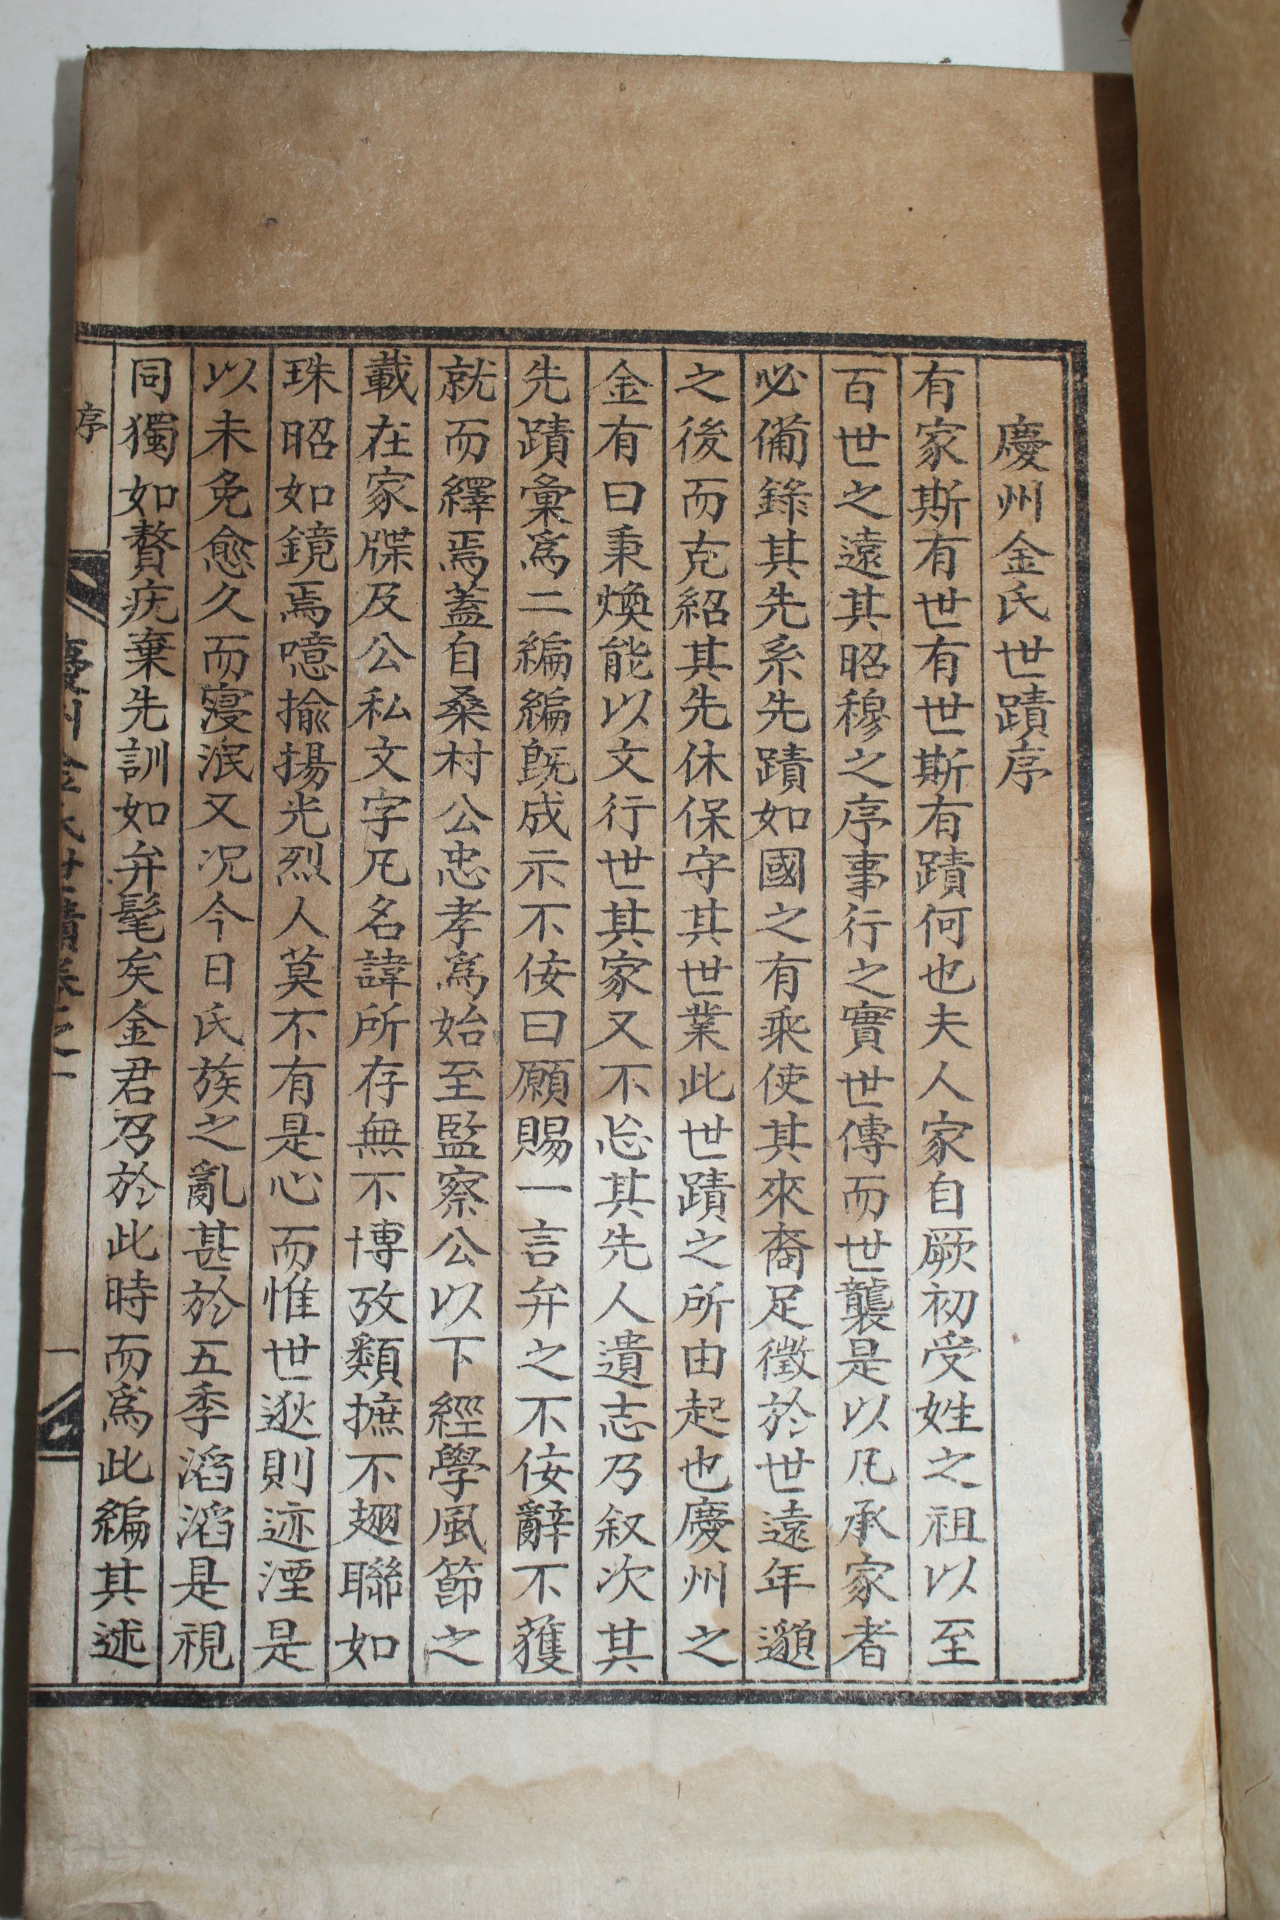 慶州金氏世蹟序
有家斯有世有世斯有蹟何也夫人家自厥初受姓之祖以至
百世之遠其昭穆之序事行之實世傳而世襲是以凡承家者
必備錄其先系先蹟如國之有乘使其來裔足徵於世遠年邈
之後而克紹其先休保守其世業此世蹟之所由起也慶州之
金有曰秉煥能以文行世其家又不忘其先人遺志乃叙次其
先蹟彙爲二編編旣成示不侫曰願賜一言弁之不侫辭不獲
就而繹焉蓋自桑村公忠孝爲始至監察公以下經學風節之
載在家牒及公私文字凡名諱所存無不博攷類摭不翅聯如
珠昭如鏡焉噫揄揚光烈人莫不有是心而惟世逖則迹湮是
以未免愈久而寖泯又况今日氏族之亂甚於五季滔滔是視
同獨如贅疣棄先訓如弁髦矣金君乃於此時而爲此編其述
序
慶州金氏世蹟卷之一
一